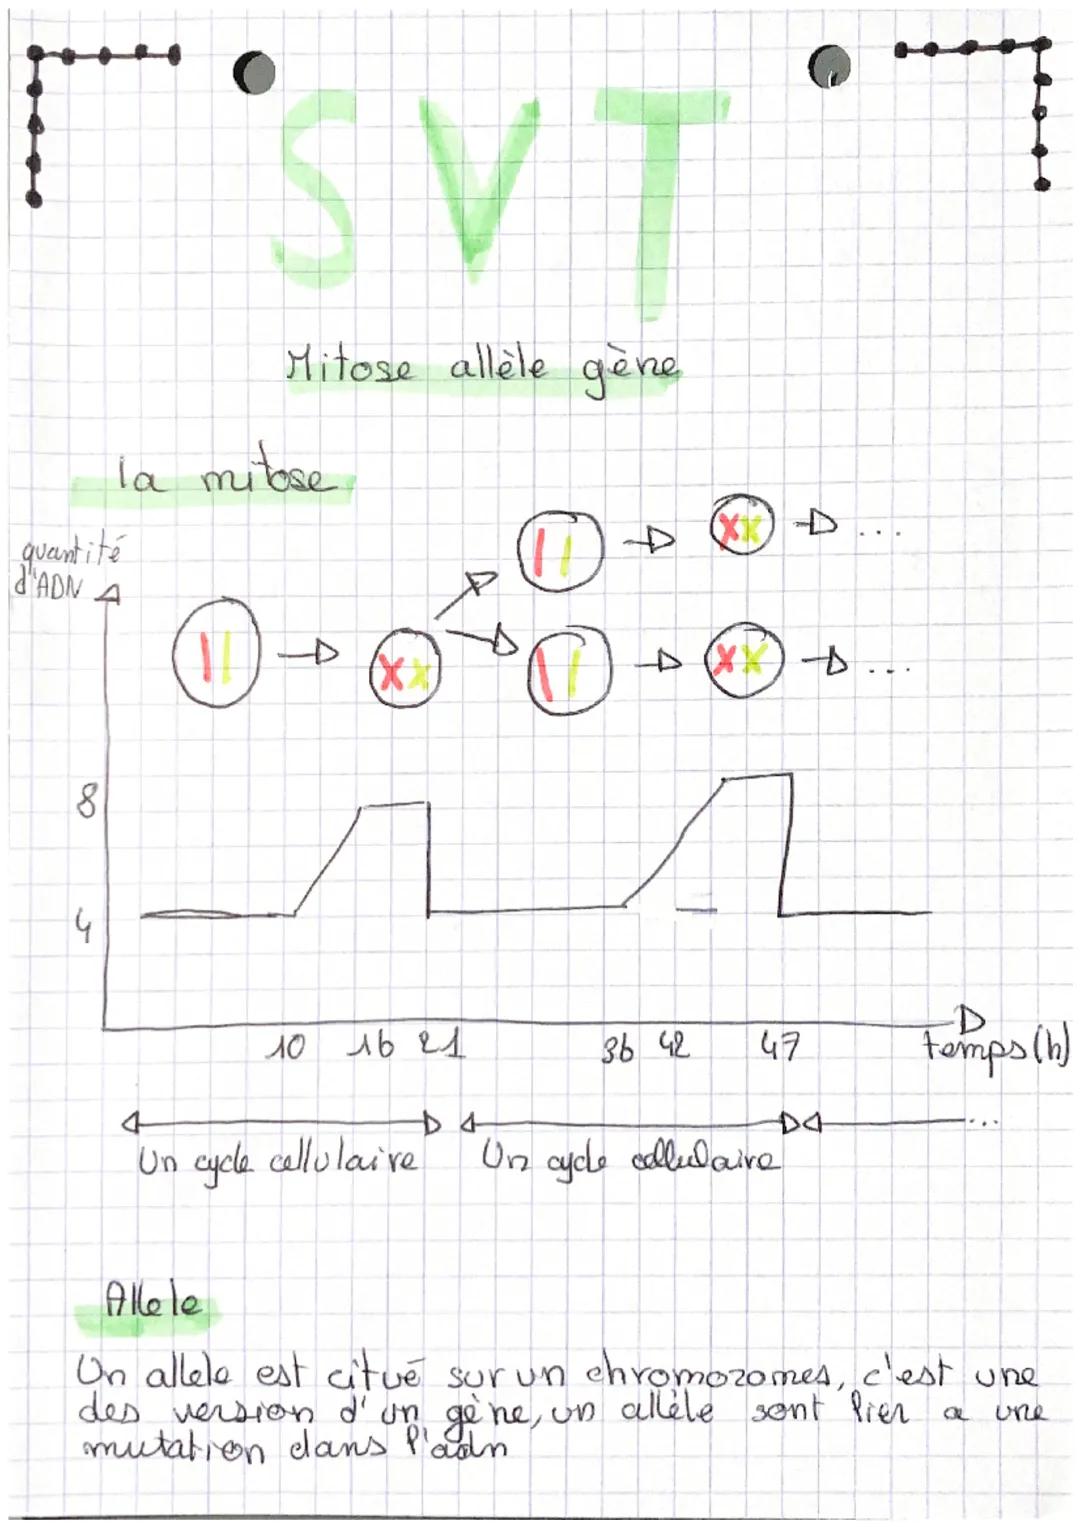 SVT
Mitose allèle gène
la mitose
quantité
d'ADN
...
...
8
4
10 16 21 36 42 47
temps (h)
...
Un cycle cellulaire Un cycle cellulaire
Allele
Un allele est citué sur un chromozomes, c'est une
des version d'un gène, un allèle sont lier a une
mutation dans l'adn